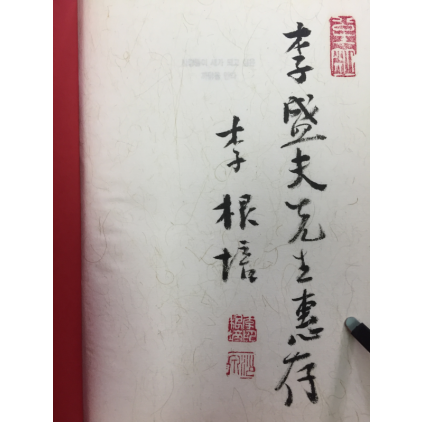 李盛夫先生惠存
李根培